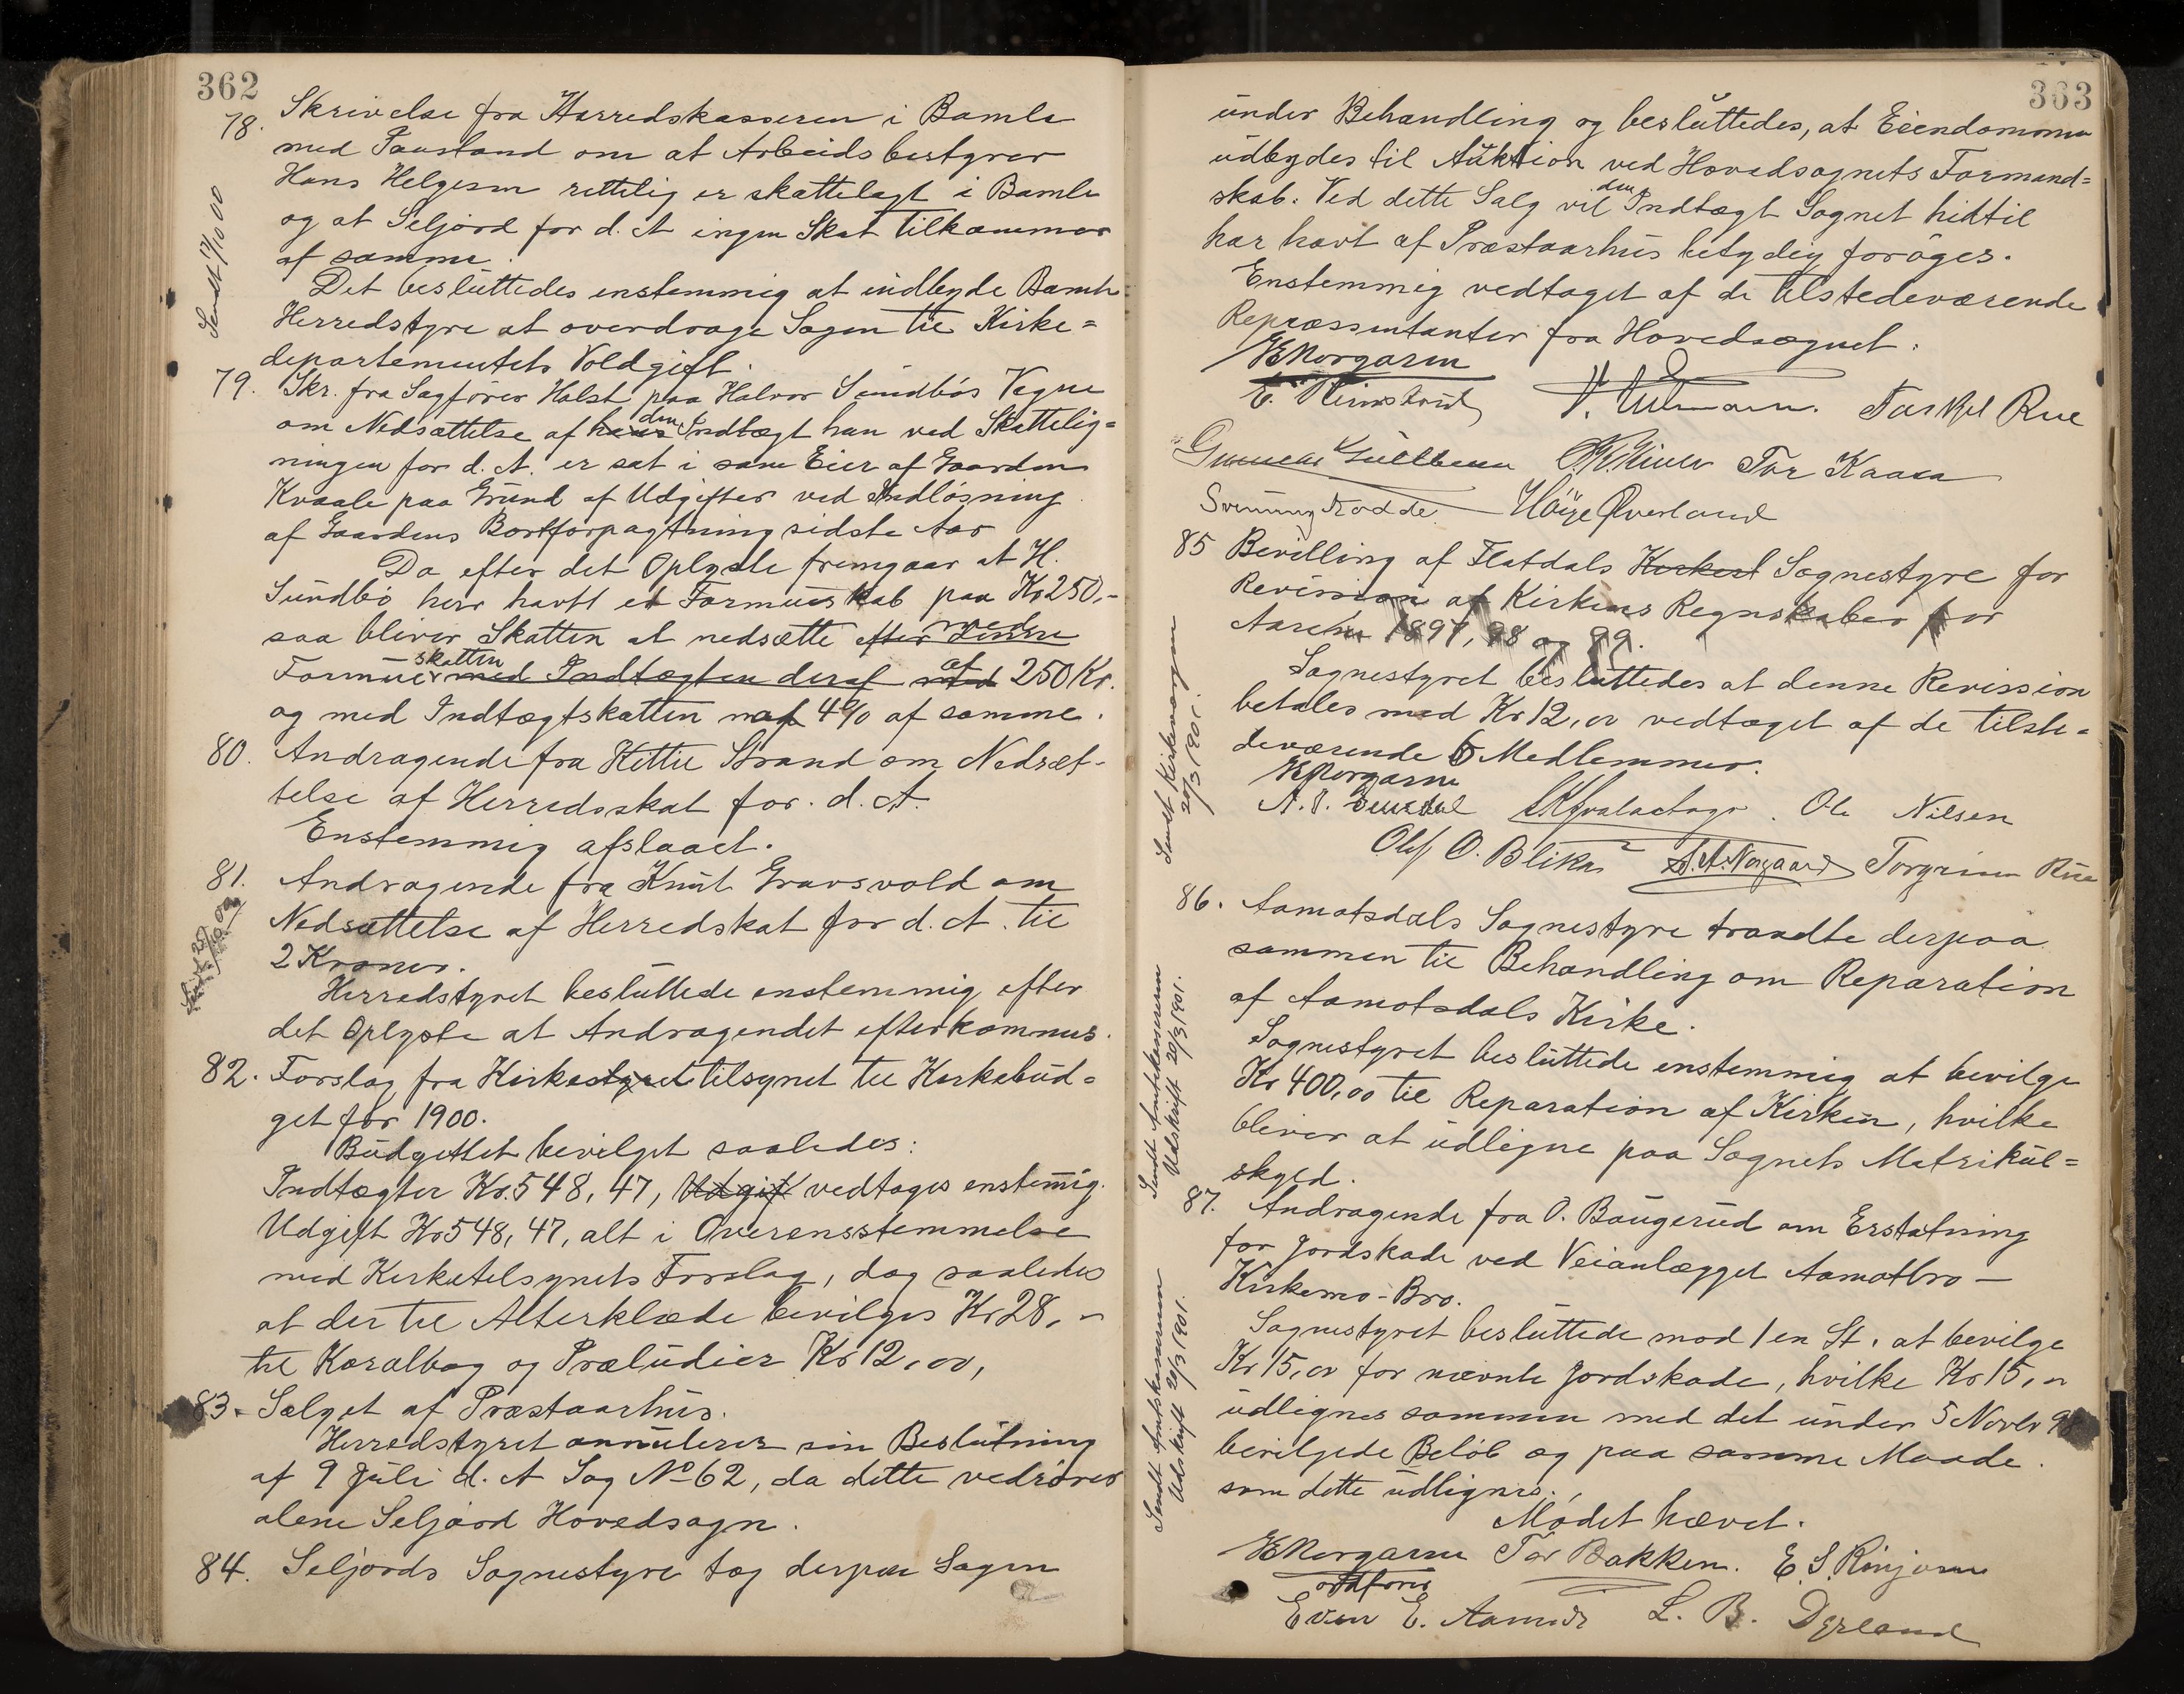 362
78. Skrivelse fra Herredskasseren i Bamle
med Paastand om at Arbeidsbestyrer
Hans Helgesen rettelig er skattelagt i Bamle
og at Seljord for d. A ingen Skat tilkommer
af samme.
Det besluttedes enstemmig at indbyde Bamle
Herredstyre at overdrage Sagen til Kirke=
departementets Voldgift.
79. Skr. fra Sagfører Holst paa Halvor Sundbøs Vegne
om Nedsættelse af hans den Indtægt han ved Skattelig=
ningen for d. A. er sat i som Eier af Gaarden
Kvaale paa Grund af Udgifter ved Indløsning
af Gaardens Bortforpagtning sidste Aar
Da efter det Oplyste fremgaar at H.
Sundbø her havt et Formueskab paa Kr 250,-
saa bliver Skatten at nedsætte efter denne med
Formueskatten med Indtægten deraf med af 250 Kr.
og med Indtægtskatten af 4% af samme.
80. Andragende fra Kittil Strand om Nedsæt-
telse af Herredsskat for d. A.
Enstemmig afslaaet.
81. Andragende fra Knut Gravsvold om
Nedsættelse af Herredskat for d. A. til
2 Kroner.
Herredstyret besluttede enstemmig efter
det Oplyste at Andragendet efterkommes.
82. Forslag fra Kirkestyret tilsynet til Kirkebud=
get for 1900.
Budgettet bevilget saaledes:
Indtægter Kr. 548,47, Udgif vedtages enstemmig.
Udgift Kr 548,47, alt i Overensstemmelse
med Kirketilsynets Forslag, dog saaledes
at der til Alterklæde bevilges Kr 28,-
til Koralbog og Præludier Kr 12,00,
83. Salget af Præstaarhus.
Herredstyret annulerer sin Beslutning
af 9 Juli d. A Sag No 62, da dette vedrører
alene Seljord Hovedsogn.
84. Seljords Sognestyre tog derpaa Sagen
Sendt 17/10 00
363
under Behandling og besluttedes, at Eiendommen
udbydes til Auktion ved Hovedsognets Formand=
skab. Ved dette Salg vil den Indtægt Sognet hidtil
har havt af Præstaarhus betydelig forøges.
Enstemmig vedtaget af de tilstedeværende
Repræsentanter fra Hovedsognet.
Tarkjel Rue
Tor Kaasa
Svenung Høye Øverland
85 Bevilling af Flatdals Kirkest Sognestyre for
Revision af Kirkens Regnskaber for
Aarene 1897, 98 og 99.
Sognestyret besluttedes at denne Revission
betales med Kr 12,00 vedtaget af de tilste=
deværende 6 Medlemmer.
Ole Nilsen
Olef O. Blika A. A. Norgaard Torgrim Rue
86. Aamotsdals Sognestyre traadte derpaa
sammen til Behandling om Reparation
af Aamotsdals Kirke.
Sognestyret besluttede enstemmig at bevilge
Kr 400,00 til Reparation af Kirken, hvilke
bliver at udligne paa Sognets Matrikul=
skyld.
87. Andragende fra O. Baugerud om Erstatning
for Jordskade ved Veianlægget Aamotbro —
Kirkemo-Bro.
Sognestyret besluttede mod 1 en St. at bevilge
Kr 15,00 for nævnte Jordskade, hvilke Kr 15,00
udlignes sammen med det under 5 Novbr 98
bevilgede Beløb og paa samme Maade
som dette udlignes.
Mødet hævet.
Tor Bakken. E. S. Rinjom
ordfører
Even E. Aamodt L. B. Dyrland
Sendt Kirkevergen
20/3 1901.
Sendt Amtskassereren
Udskrift 20/3 1901.
Sendt Amtskassereren
Udskrift 20/3 1901.